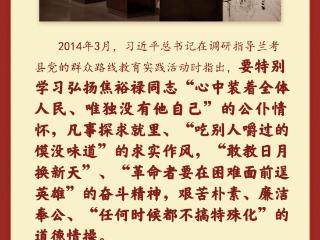 2014年3月，习近平总书记在调研指导兰考
县党的群众路线教育实践活动时指出，要特别
学习弘扬焦裕禄同志“心中装着全体
人民、唯独没有他自己”的公仆情
怀，凡事探求就里、“吃别人嚼过的
馍没味道”的求实作风，“敢教日月
换新天”、“革命者要在困难面前逞
英雄”的奋斗精神，艰苦朴素、廉洁
奉公、“任何时候都不搞特殊化”的
道德情操。